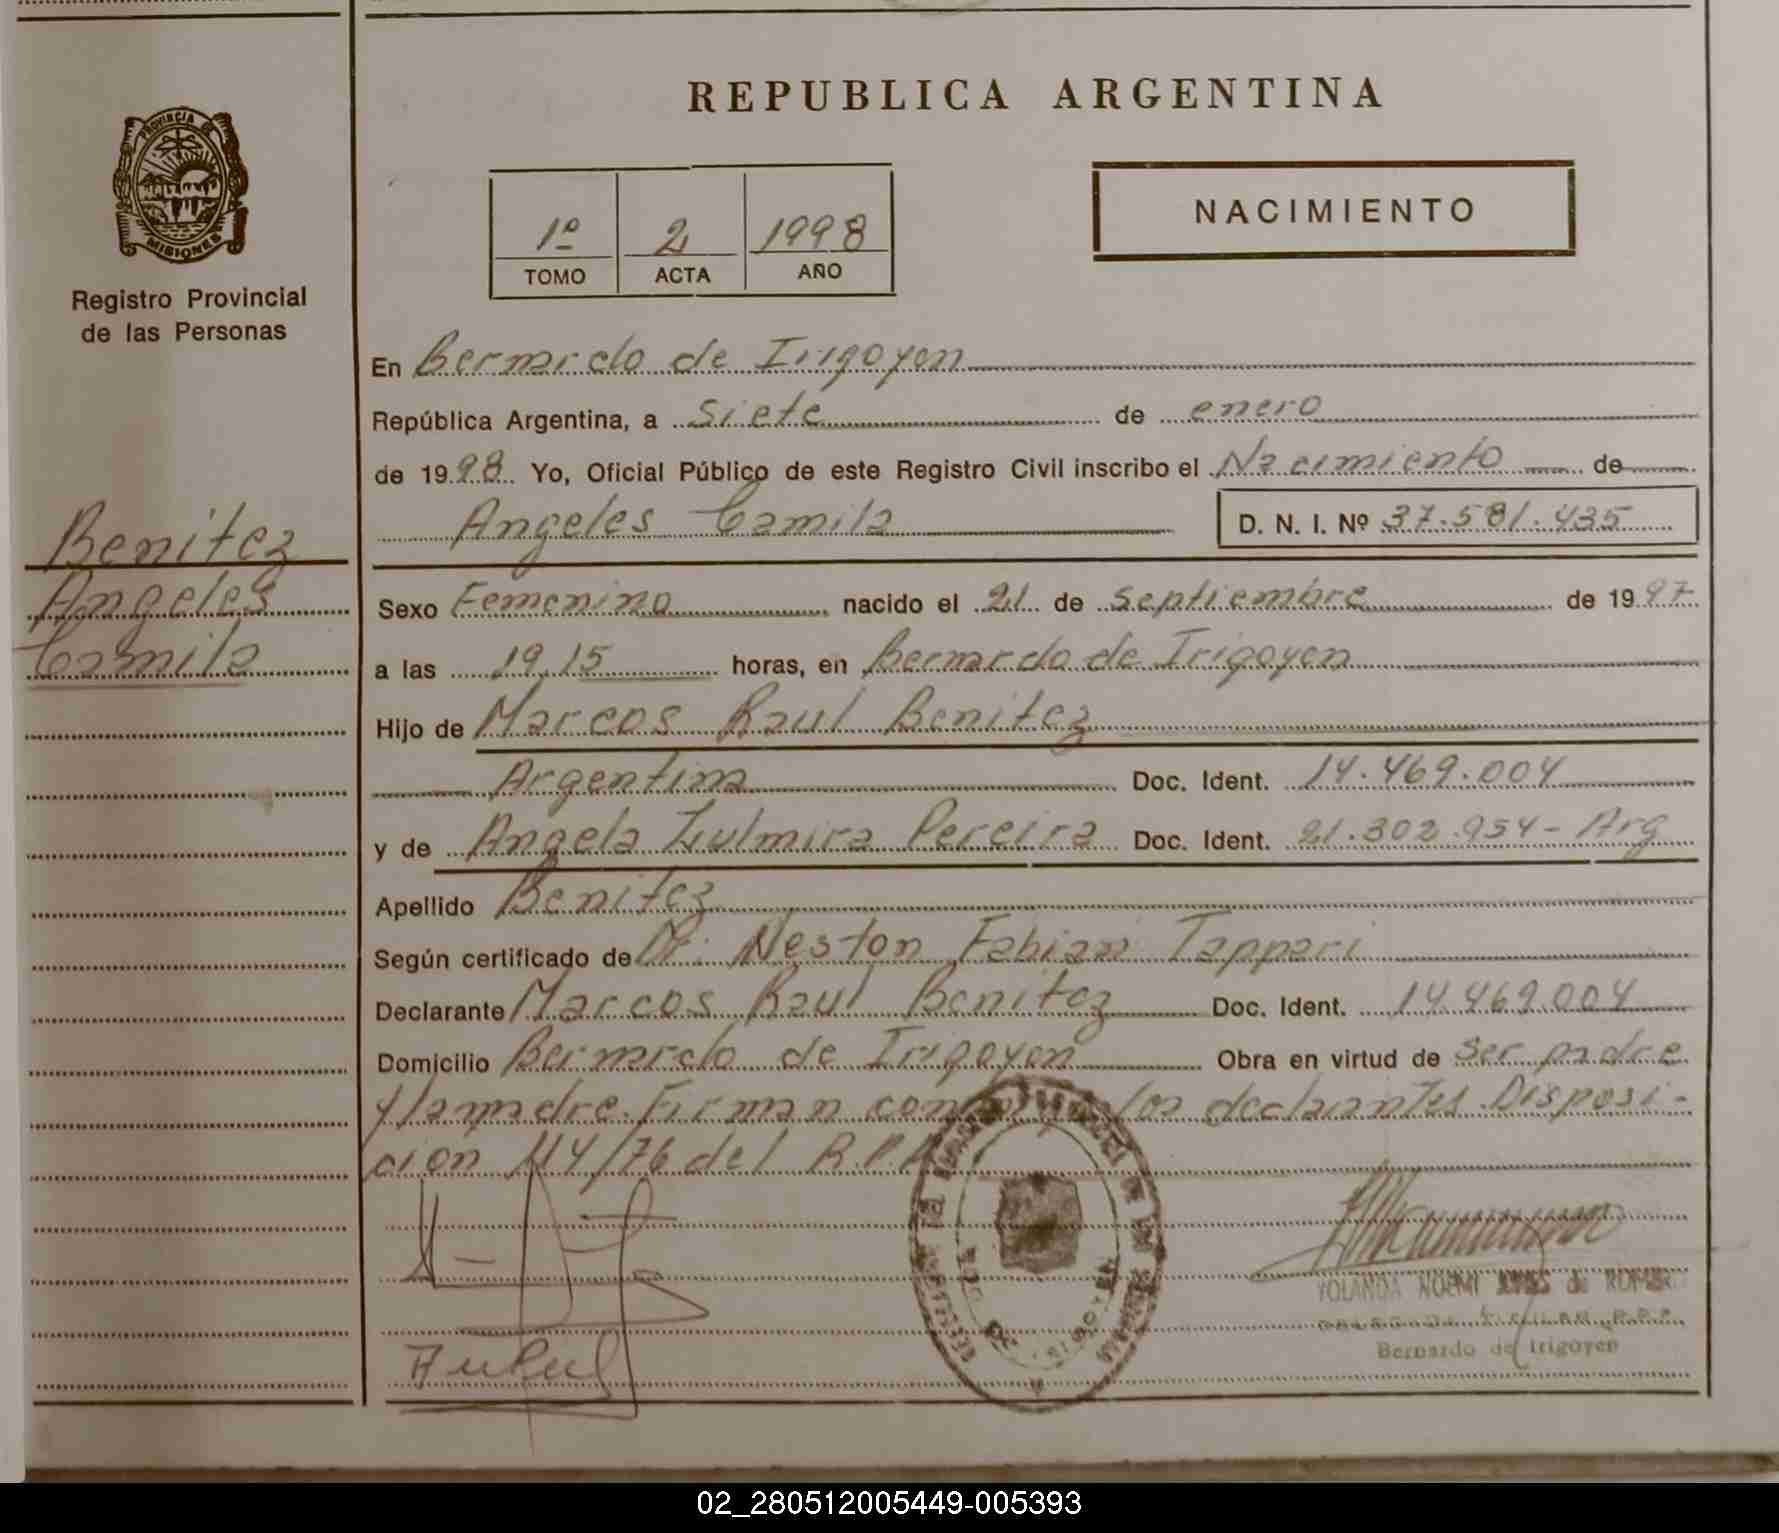 REPUBLICA ARGENTINA
PROVINCIA DE
MISIONES
Registro Provincial
de las Personas
1º 2 1998
TOMO ACTA AÑO
NACIMIENTO
En Bernardo de Irigoyen
República Argentina, a siete de enero
de 1998 Yo, Oficial Público de este Registro Civil inscribo el Nacimiento de
Angeles Camila D. N. I. Nº 37.581.435
Benitez
Angeles
Camila
Sexo Femenino nacido el 21 de septiembre de 1997
a las 19,15 horas, en Bernardo de Irigoyen
Hijo de Marcos Raul Benitez
Argentina Doc. Ident. 14.469.004
y de Angela Zulmira Pereira Doc. Ident. 21.302.954- Arg
Apellido Benitez
Según certificado de Neston Fabian Tappari
Declarante Marcos Raul Benitez Doc. Ident. 14.469.004
Domicilio Bernardo de Irigoyen Obra en virtud de ser padre
y la madre. Firman los declarantes. Disposi-
cion 114/76 del R.P.P.
YOLANDA NOEMI de
Bernardo de Irigoyen
02_280512005449-005393